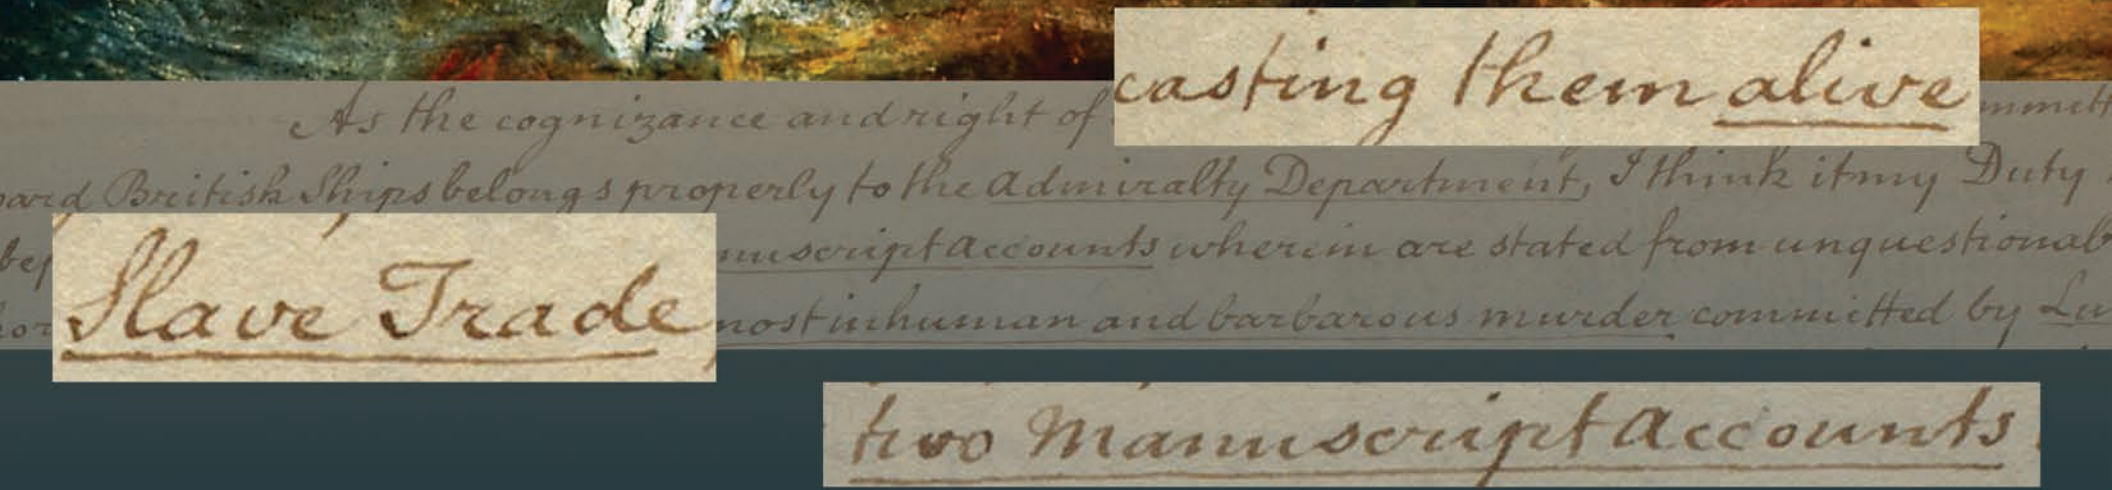 casting them alive
As the cognizance and right of
British Ships belongs properly to the Admiralty Department, I think it my Duty
Slave Trade
accounts wherein are stated from
inhuman and barbarous murder committed by
two Manuscript accounts